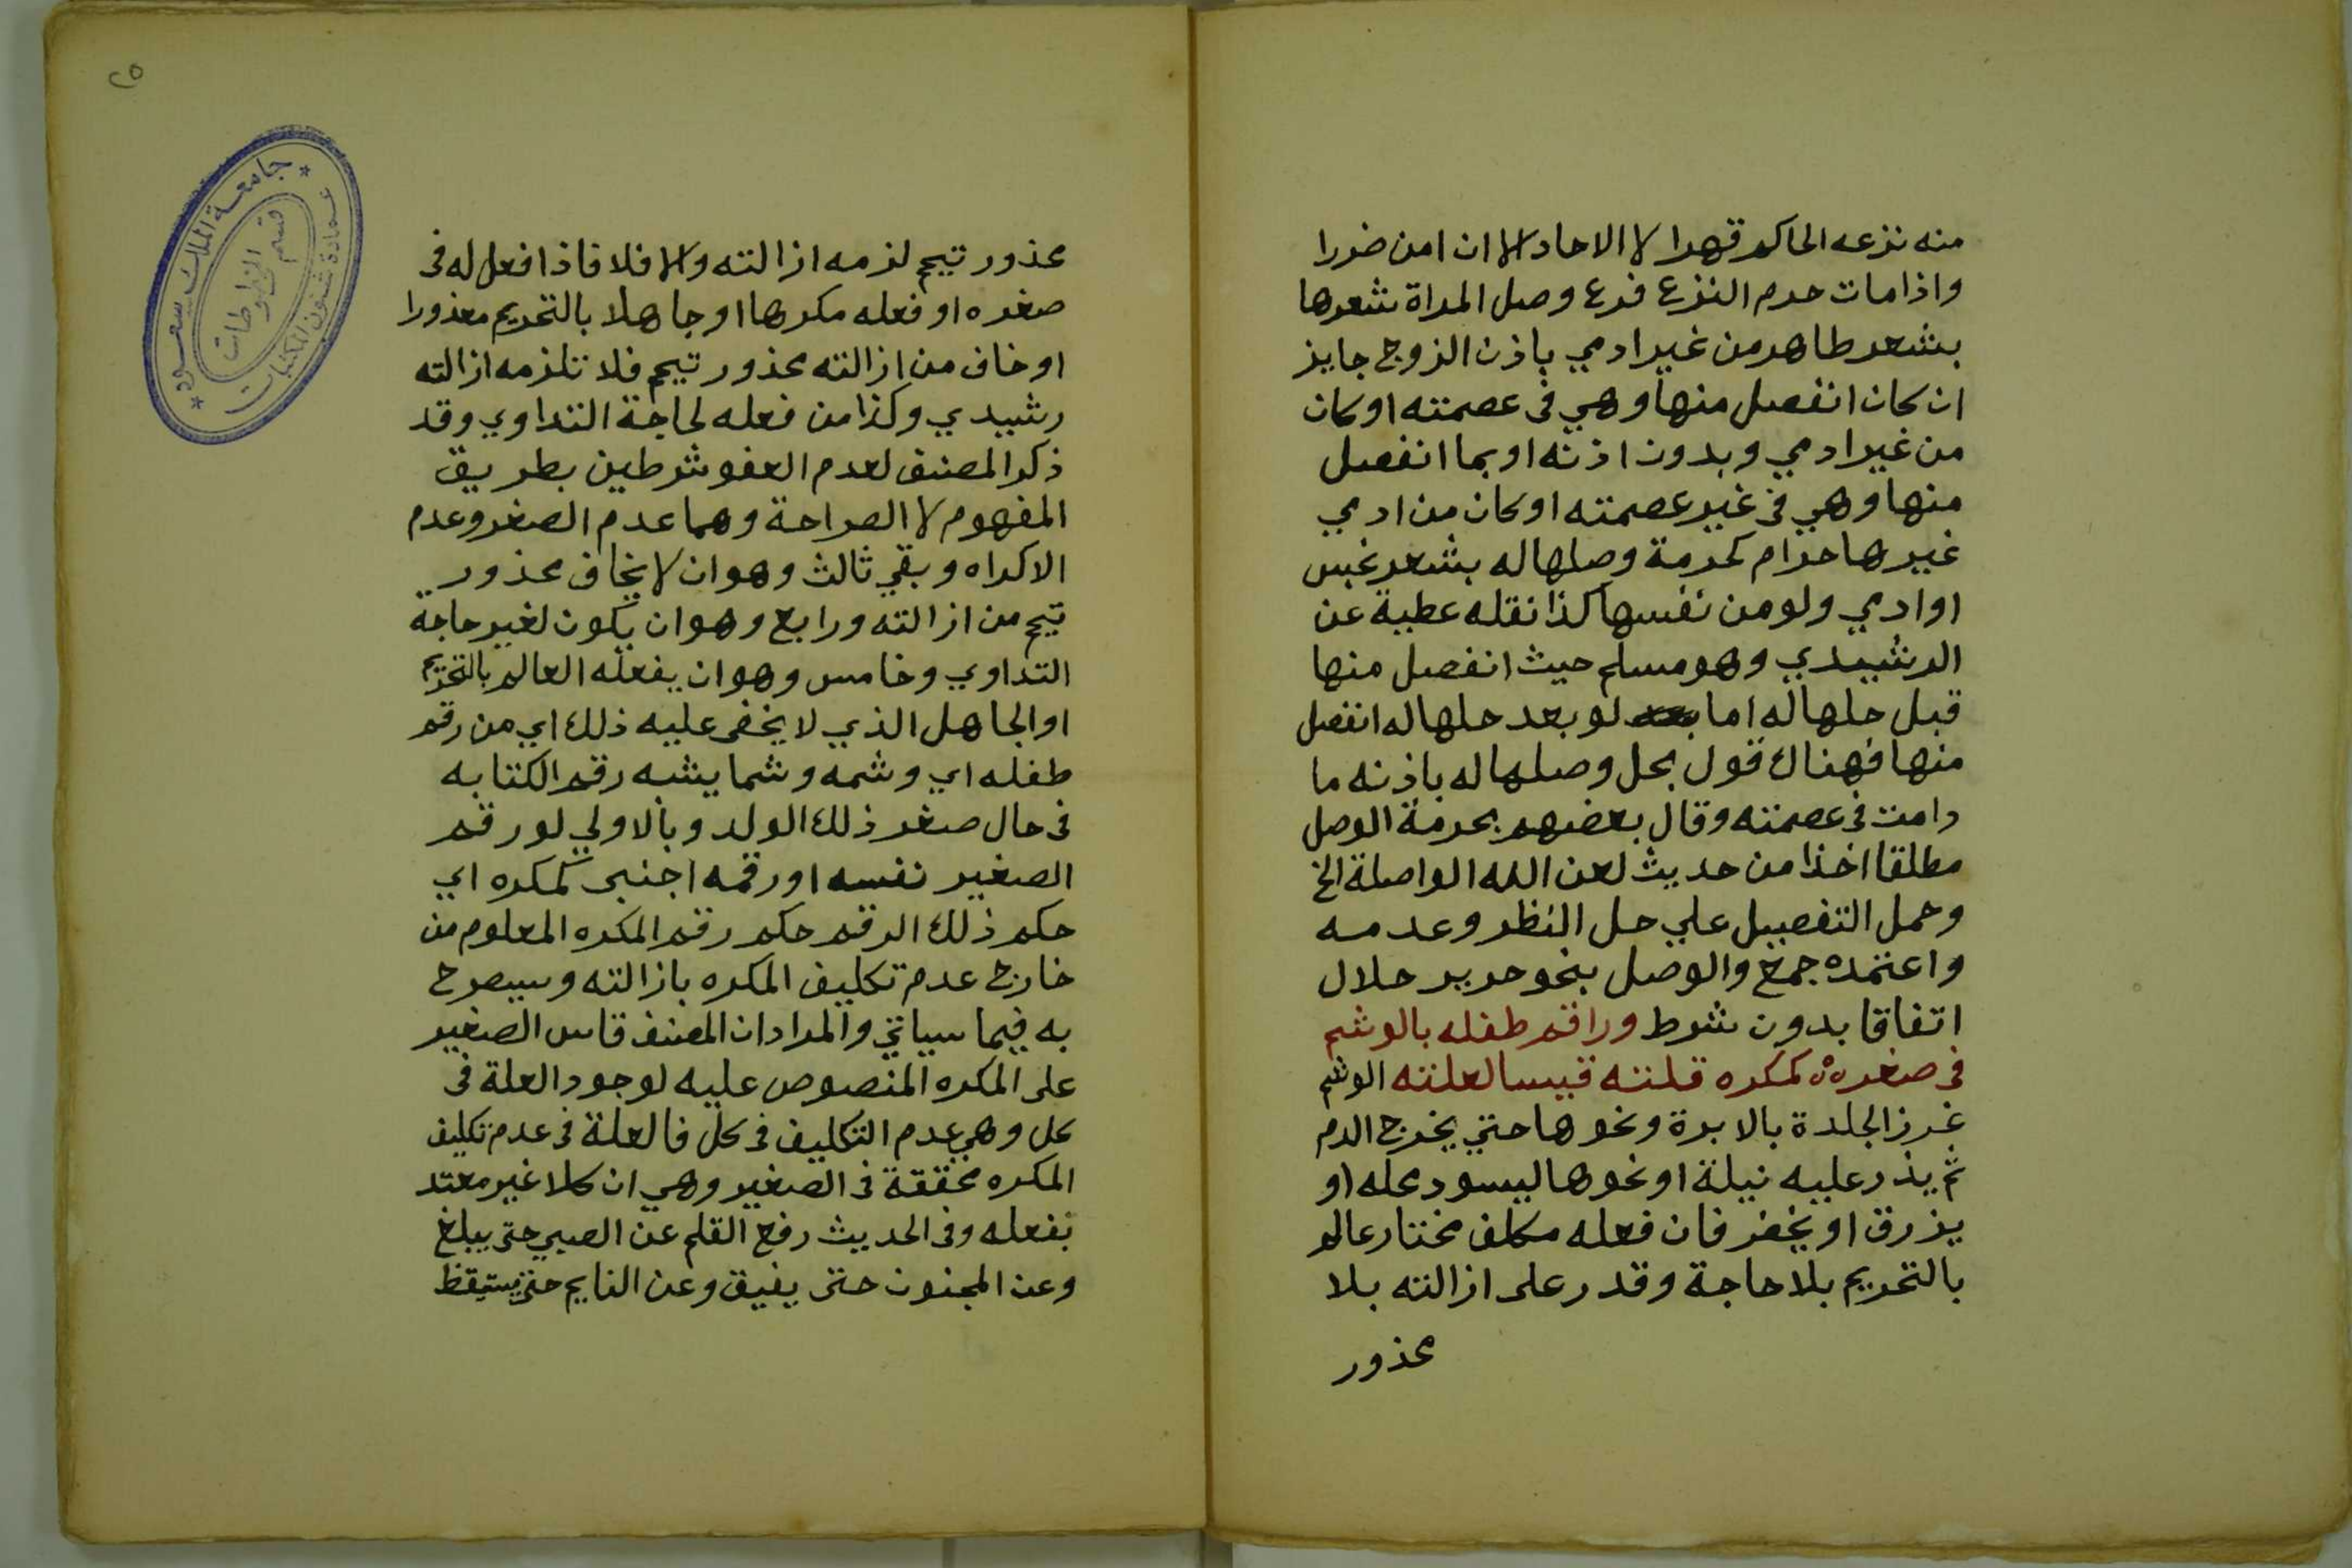 منه نزعه الحاكم قهرا لا الاحاد الا ان امن ضررا
واذا مات حرم النزع فرع وصل المراة شعرها
بشعر طاهر من غير ادمي باذن الزوج جايز
ان كان انفصل منها وهي فى عصمته او كان
من غير ادمي وبدون اذنه او بما انفصل
منها وهي فى غير عصمته او كان من ادمي
غيرها حرام كحرمة وصلها له بشعر نجس
او ادمي ولو من نفسها كذا نقله عطية عن
الرشيدي وهو مسلم حيث انفصل منها
قبل حلها له اما لو بعد حلها له انفصل
منها فهناك قول بحل وصلها له باذنه ما
دامت فى عصمته وقال بعضهم بحرمة الوصل
مطلقا اخذا من حديث لعن الله الواصلة الخ
وحمل التفصيل علي حل النظر وعدمه
واعتمده جمع والوصل بنحو حرير حلال
اتفاقا بدون شرط وراقم طفله بالوشم
فى صغره كمكره قلته قيسا لعلته الوشم
غرز الجلدة بالابرة ونحوها حتي يخرج الدم
ثم يذر عليه نيلة او نحوها ليسود محله او
يزرق او يخضر فان فعله مكلف مختار عالم
بالتحريم بلا حاجة وقدر على ازالته بلا
محذور
٢٥
جامعة الملك سعود
عمادة شئون المكتبات
قسم المخطوطات
محذور تيمم لزمه ازالته والا فلا فاذا فعل له فى
صغره او فعله مكرها او جاهلا بالتحريم معذورا
او خاف من ازالته محذور تيمم فلا تلزمه ازالته
رشيدي وكذا من فعله لحاجة التداوي وقد
ذكر المصنف لعدم العفو شرطين بطريق
المفهوم لا الصراحة وهما عدم الصغر وعدم
الاكراه وبقي ثالث وهو ان لا يخاف محذور
تيمم من ازالته ورابع وهو ان يكون لغير حاجة
التداوي وخامس وهو ان يفعله العالم بالتحريم
او الجاهل الذي لا يخفى عليه ذلك اي من رقم
طفله اي وشمه وشما يشبه رقم الكتابه
فى حال صغر ذلك الولد وبالاولي لو رقم
الصغير نفسه او رقمه اجنبى كمكره اي
حكم ذلك الرقم حكم رقم المكره المعلوم من
خارج عدم تكليف المكره بازالته وسيصرح
به فيما سياتي والمراد ان المصنف قاس الصغير
على المكره المنصوص عليه لوجود العلة فى
كل وهي عدم التكليف فى كل فالعلة فى عدم تكليف
المكره محققة فى الصغير وهي ان كلا غير معتد
بفعله وفى الحديث رفع القلم عن الصبي حتى يبلغ
وعن المجنون حتى يفيق وعن النايم حتى يستيقظ